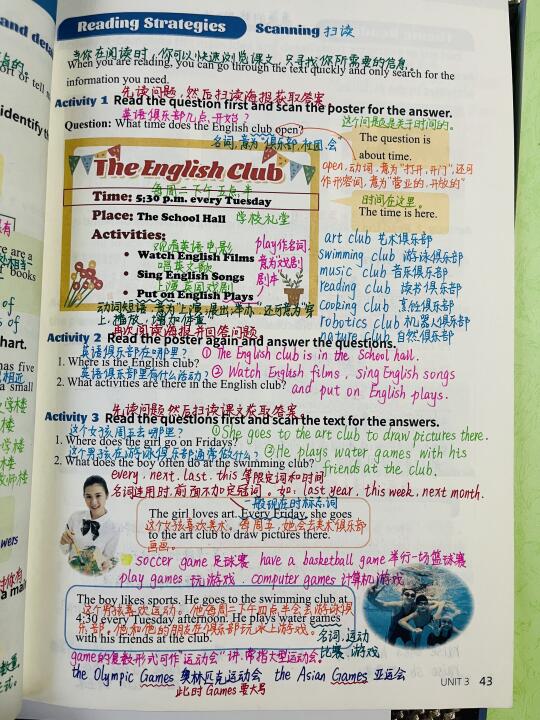 Reading Strategies Scanning 扫读
当你在阅读时,你可以快速浏览课文,只寻找你所需要的信息
When you are reading, you can go through the text quickly and only search for the
information you need.
先读问题,然后扫读海报获取答案
Activity 1 Read the question first and scan the poster for the answer.
英语俱乐部几点开放?
这个问题是关于时间的。
Question: What time does the English club open?
名词,意为"俱乐部,社团,会"
The question is
about time.
The English Club
open,动词,意为"打开,开门",还可
作形容词,意为"营业的,开放的"
每周二下午五点半
Time: 5:30 p.m. every Tuesday
时间在这里。
The time is here.
Place: The School Hall 学校礼堂
Activities:
观看英语电影
• Watch English Films
唱英文歌
• Sing English Songs
上演英国戏剧
• Put on English Plays
play作名词,
意为"戏剧
剧本"
art club 艺术俱乐部
swimming club 游泳俱乐部
music club 音乐俱乐部
reading club 读书俱乐部
cooking club 烹饪俱乐部
robotics club 机器人俱乐部
nature club 自然俱乐部
动词短语,意为"上演;展出;举办",还可意为"穿
上,播放,增加体重"
再次阅读海报,并回答问题
Activity 2 Read the poster again and answer the questions.
英语俱乐部在哪里?
① The English club is in the School hall.
1. Where is the English club?
英语俱乐部里有什么活动?
② Watch English films, sing English songs
2. What activities are there in the English club?
and put on English plays.
先读问题,然后扫读课文获取答案
Activity 3 Read the questions first and scan the text for the answers.
这个女孩周五去哪里?
① She goes to the art club to draw pictures there.
1. Where does the girl go on Fridays?
这个男孩在游泳俱乐部通常做什么?
② He plays water games with his
2. What does the boy often do at the swimming club?
friends at the club.
every, next, last, this 等限定词和时间
名词连用时,前面不加定冠词。如: last year, this week, next month.
一般现在时标志词
The girl loves art. Every Friday, she goes
这个女孩喜欢美术。每周五,她会去美术俱乐部
to the art club to draw pictures there.
画画。
soccer game 足球赛 have a basketball game 举行一场篮球赛
play games 玩游戏 computer games 计算机游戏
The boy likes sports. He goes to the swimming club at
这个男孩喜欢运动。他每周二下午四点半会去游泳俱
4:30 every Tuesday afternoon. He plays water games
乐部。他和他的朋友在俱乐部玩水上游戏。
with his friends at the club.
名词,运动
比赛,游戏
game的复数形式可作"运动会"讲,常指大型运动会。
the Olympic Games 奥林匹克运动会 the Asian Games 亚运会
此时Games要大写
UNIT 3 43